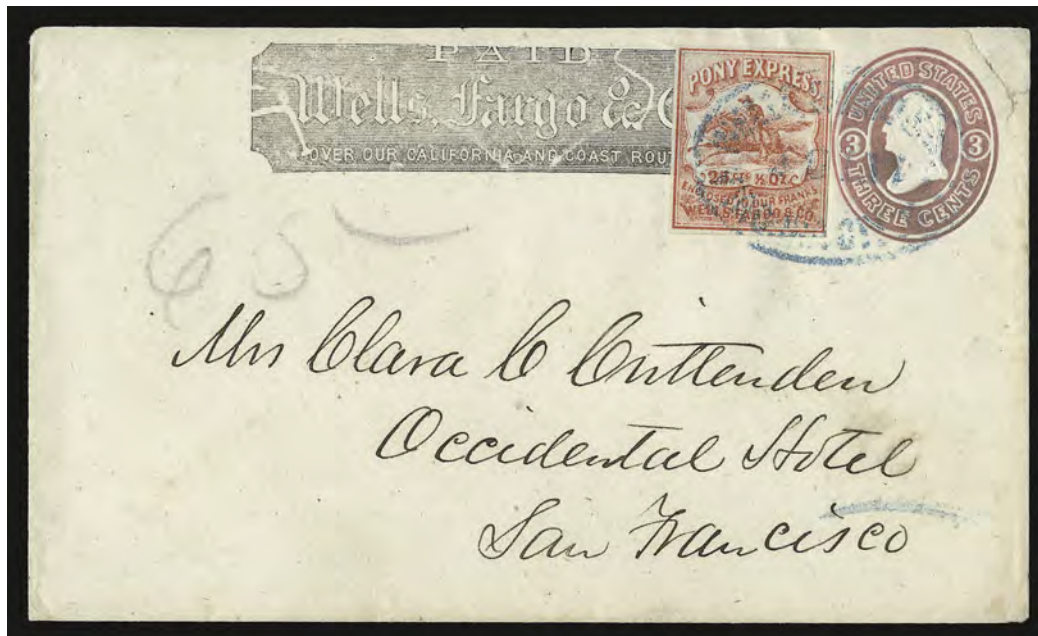 PAID
Wells, Fargo &
OVER OUR CALIFORNIA AND COAST ROU
PONY EXPRESS.
25 Cts ½ Oz.
ENCLOSED IN OUR FRANKS
WELLS, FARGO & CO.
UNITED STATES
3 3
THREE CENTS
65
Mrs Clara C Crittenden
Occidental Hotel
San Francisco